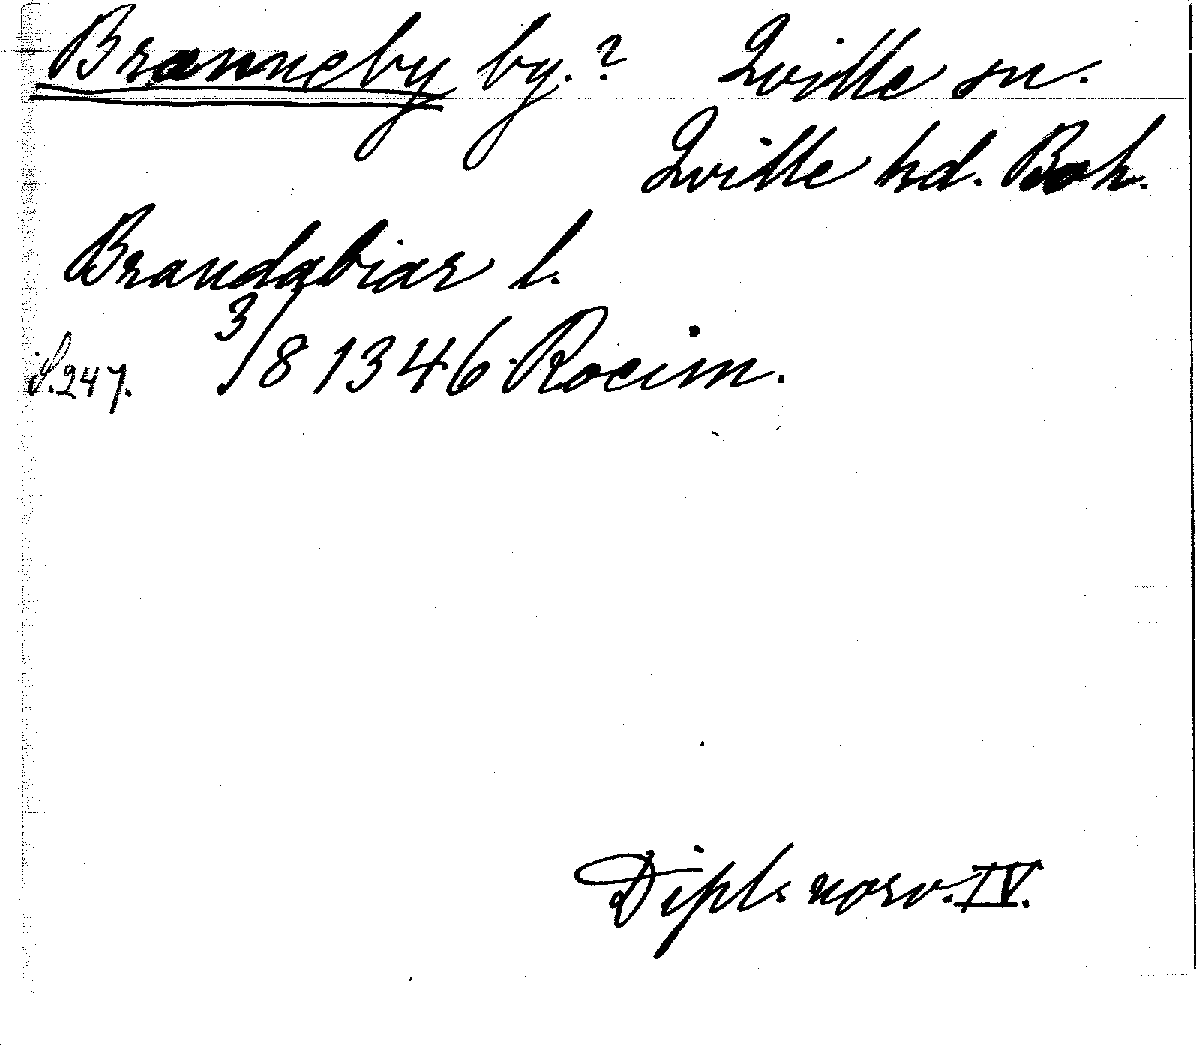 Branneby by.? Qville sn.
Qville hd. Boh.
Brandabiar l.
S.247. 3/8 1346 Rocim.
Dipl. norv. IV.